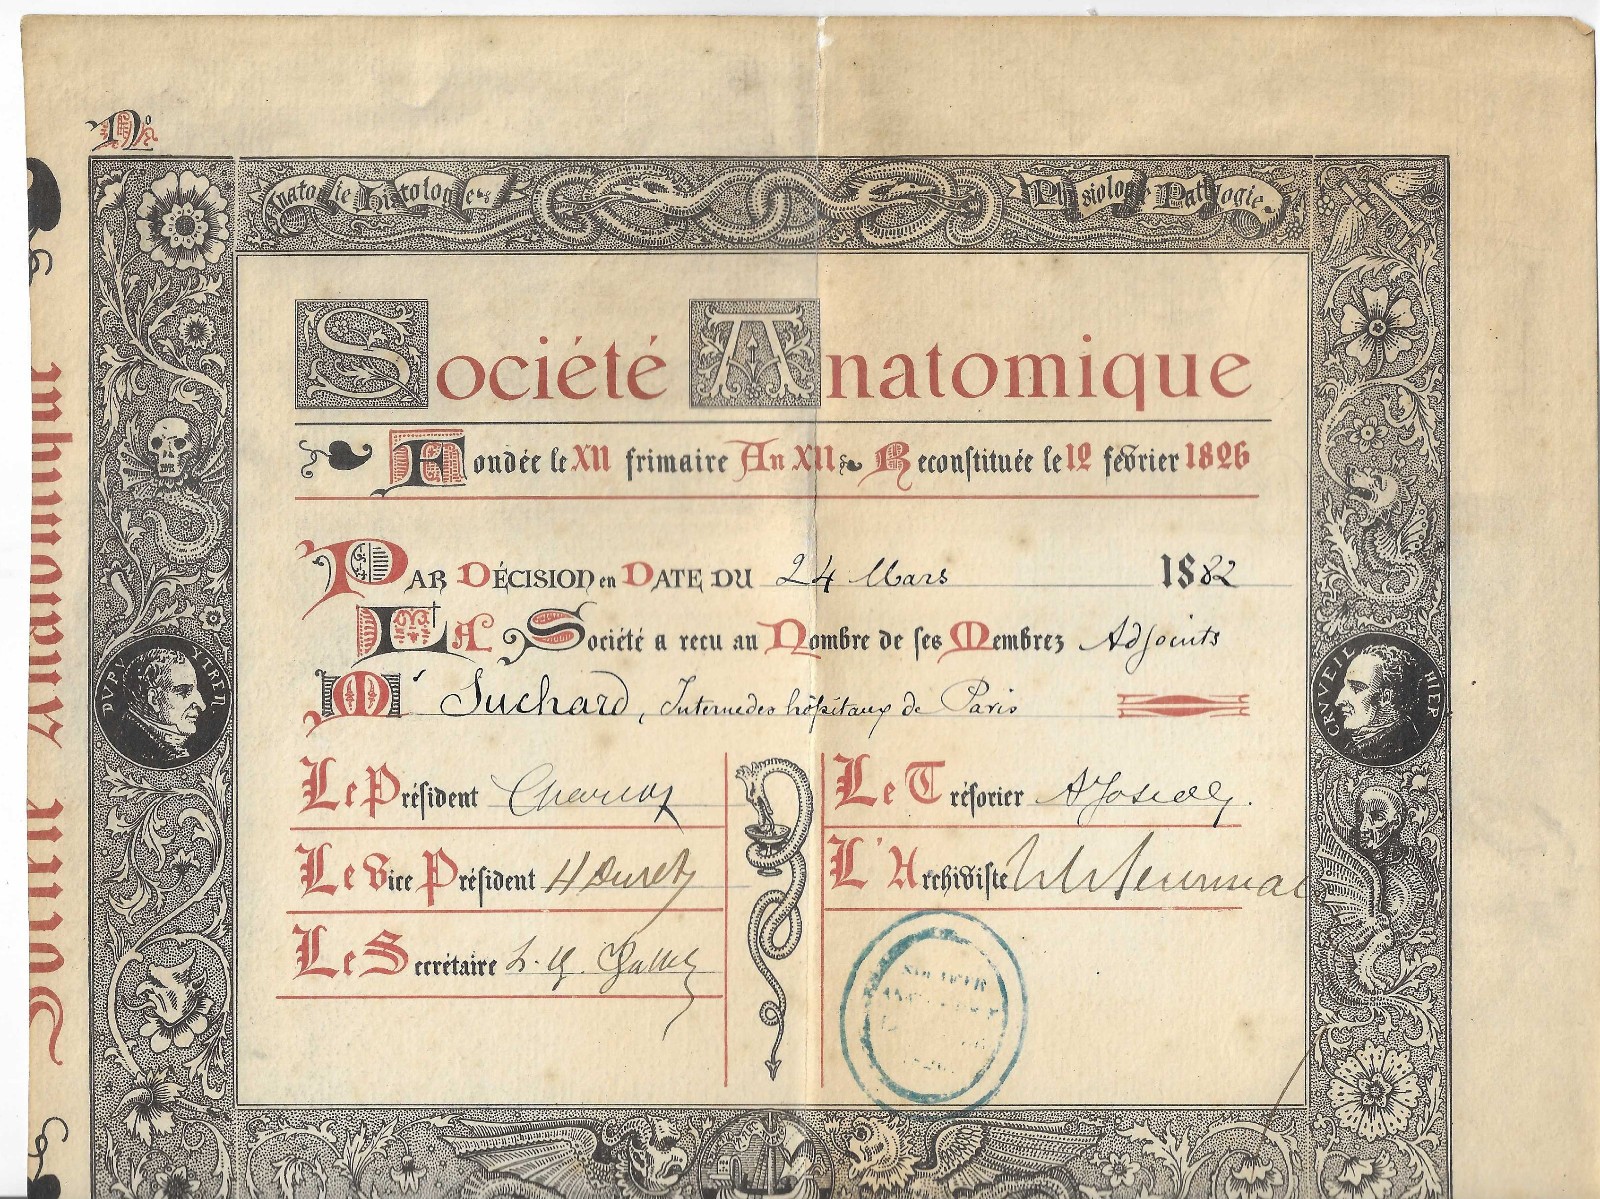 No
Anatomie Histologie
Physiologie Pathologie
Société Anatomique
Société Anatomique
Fondée le XII frimaire An XII Reconstituée le 12 février 1826
Par Décision en Date du 24 Mars 1882
La Société a recu au Nombre de ses Membres Adjoints
Mr Suchard, Interne des hôpitaux de Paris
DVPVYTREN
CRVVEILHIER
Le Président Charcot
Le Trésorier
Le Vice Président H Duret
L'Archiviste
Le Secrétaire